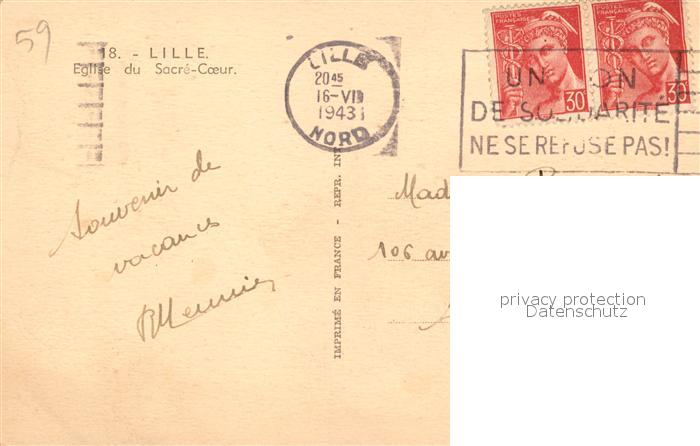 59
18. - LILLE.
Eglise du Sacré-Cœur.
LILLE
20 45
16-VII
1943
NORD
POSTES FRANÇAISES
30
POSTES FRANÇAISES
30
UN DON
DE SOLIDARITÉ
NE SE REFUSE PAS!
Souvenir de
vacances
RMeunier
IMPRIMÉ EN FRANCE - REPR. INT
106 av
privacy protection
Datenschutz